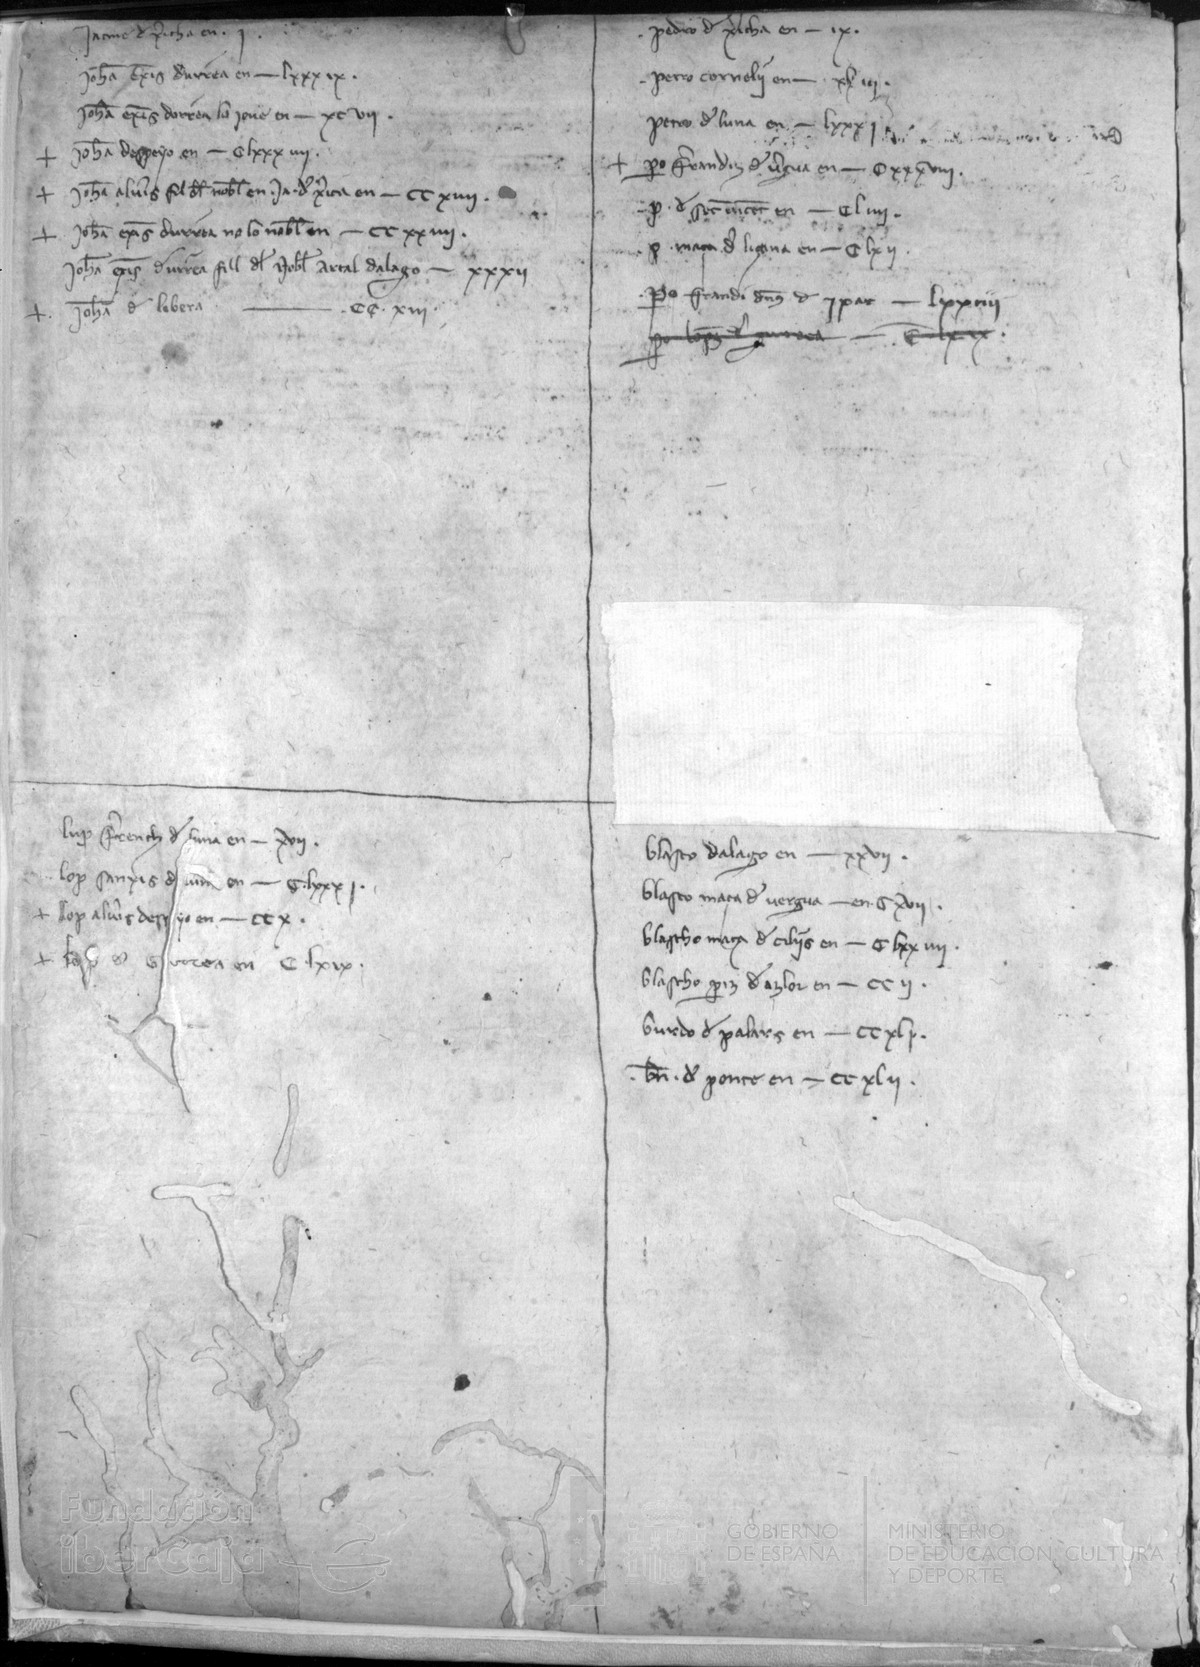 Jacme d xicha en · j ·
Joha exis durrea en — lxxx ix ·
Joha exis dorrea lo jove en — xc vii ·
+ Joha despeyo en — Clxxx iiij ·
+ Joha alvis fil del nobl en Ja. d xica en — CC xviij ·
+ Joha exis durrea no lo nobl en — CC xx iiij ·
Joha exis durrea fill dl Nobl Artal dalago — xxxij
+ Joha d lobera — CC · xiij ·
pedro d xicha en — ix ·
pero cornelii en — xl iij ·
petro d luna en — lxxx j
+ po frandiz d vgua en — C xxx viij ·
p · d en — C l iiij ·
p · maça d liçana en — C lx ij ·
Po frandi d — lxx
po lopz d gurrea — C lx ix ·
lup frrench d luna en — xvij ·
lop sanxis d luna en — C · lxxx j ·
+ Lop alvis despeyo en — CC x ·
+ Lop d Gurrea en C · lxix ·
blasco dalago en — xxvij ·
blasco maça d vergua — en C xvij ·
blascho maça d en — C lxx iiij ·
blascho piz d azlor en — CC ij ·
burdo d palars en — CC xlj ·
· bn · d ponte en — CC xl ij ·
Fundación
iberCaja
GOBIERNO
DE ESPAÑA
MINISTERIO
DE EDUCACIÓN, CULTURA
Y DEPORTE